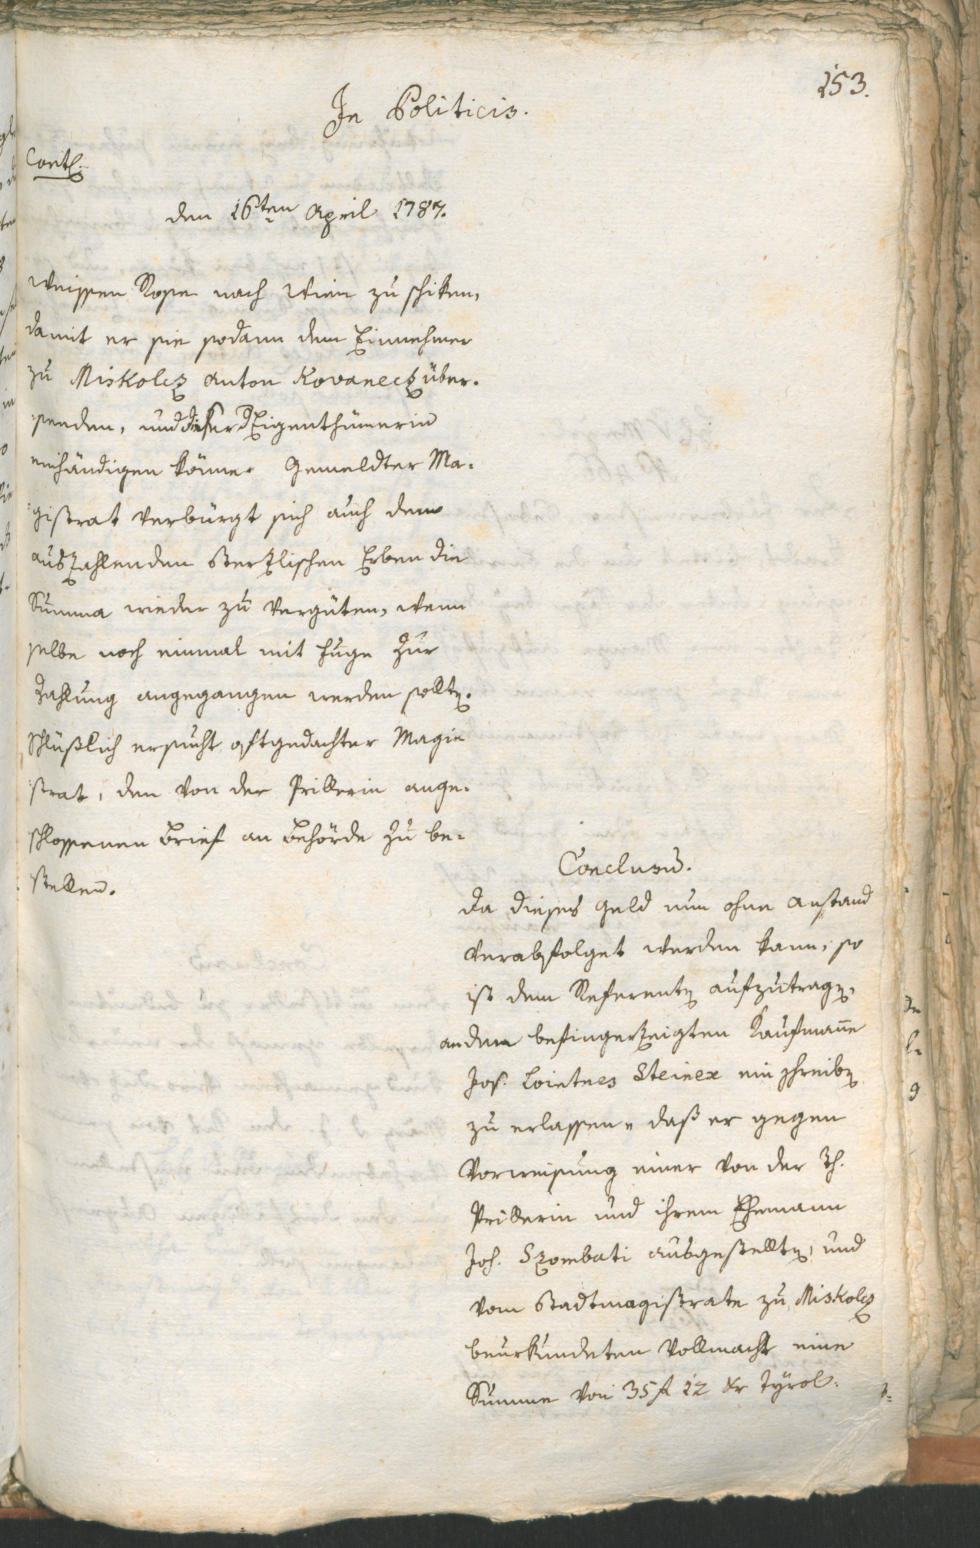 153.
In Politicis.
Contl:
den 16ten April 1787.
weissen Rosen nach Wien zu schiken,
damit er sie sodann dem Einnehmer
zu Miskolcz Anton Kovanecz über-
senden, und dieser der Eigenthümerin
einhändigen könne. Gemeldter Ma-
gistrat verbürgt sich auch dem
auszahlenden Sterzlischen Erben die
Summa wieder zu vergüten, wenn
selbe noch einmal mit Fuge zur
Zahlung angegangen werden sollte.
Schlüßlich ersucht oftgedachter Magi-
strat, den von der Prillerin ange-
schlossenen Brief an Behörde zu be-
stellen.
Conclusum.
Da dieses Geld nun ohne Anstand
verabfolget werden kann, so
ist dem Referenten aufzutragen,
an den befingerzeigten Kaufmann
Jos. Steiner ein Schreiben
zu erlassen, daß er gegen
Vorweisung einer von der Th.
Prillerin und ihrem Ehemann
Joh. Szombati ausgestellten, und
vom Stadtmagistrate zu Miskolcz
beurkundeten Vollmacht eine
Summe von 35 f 12 xr Tyrol.